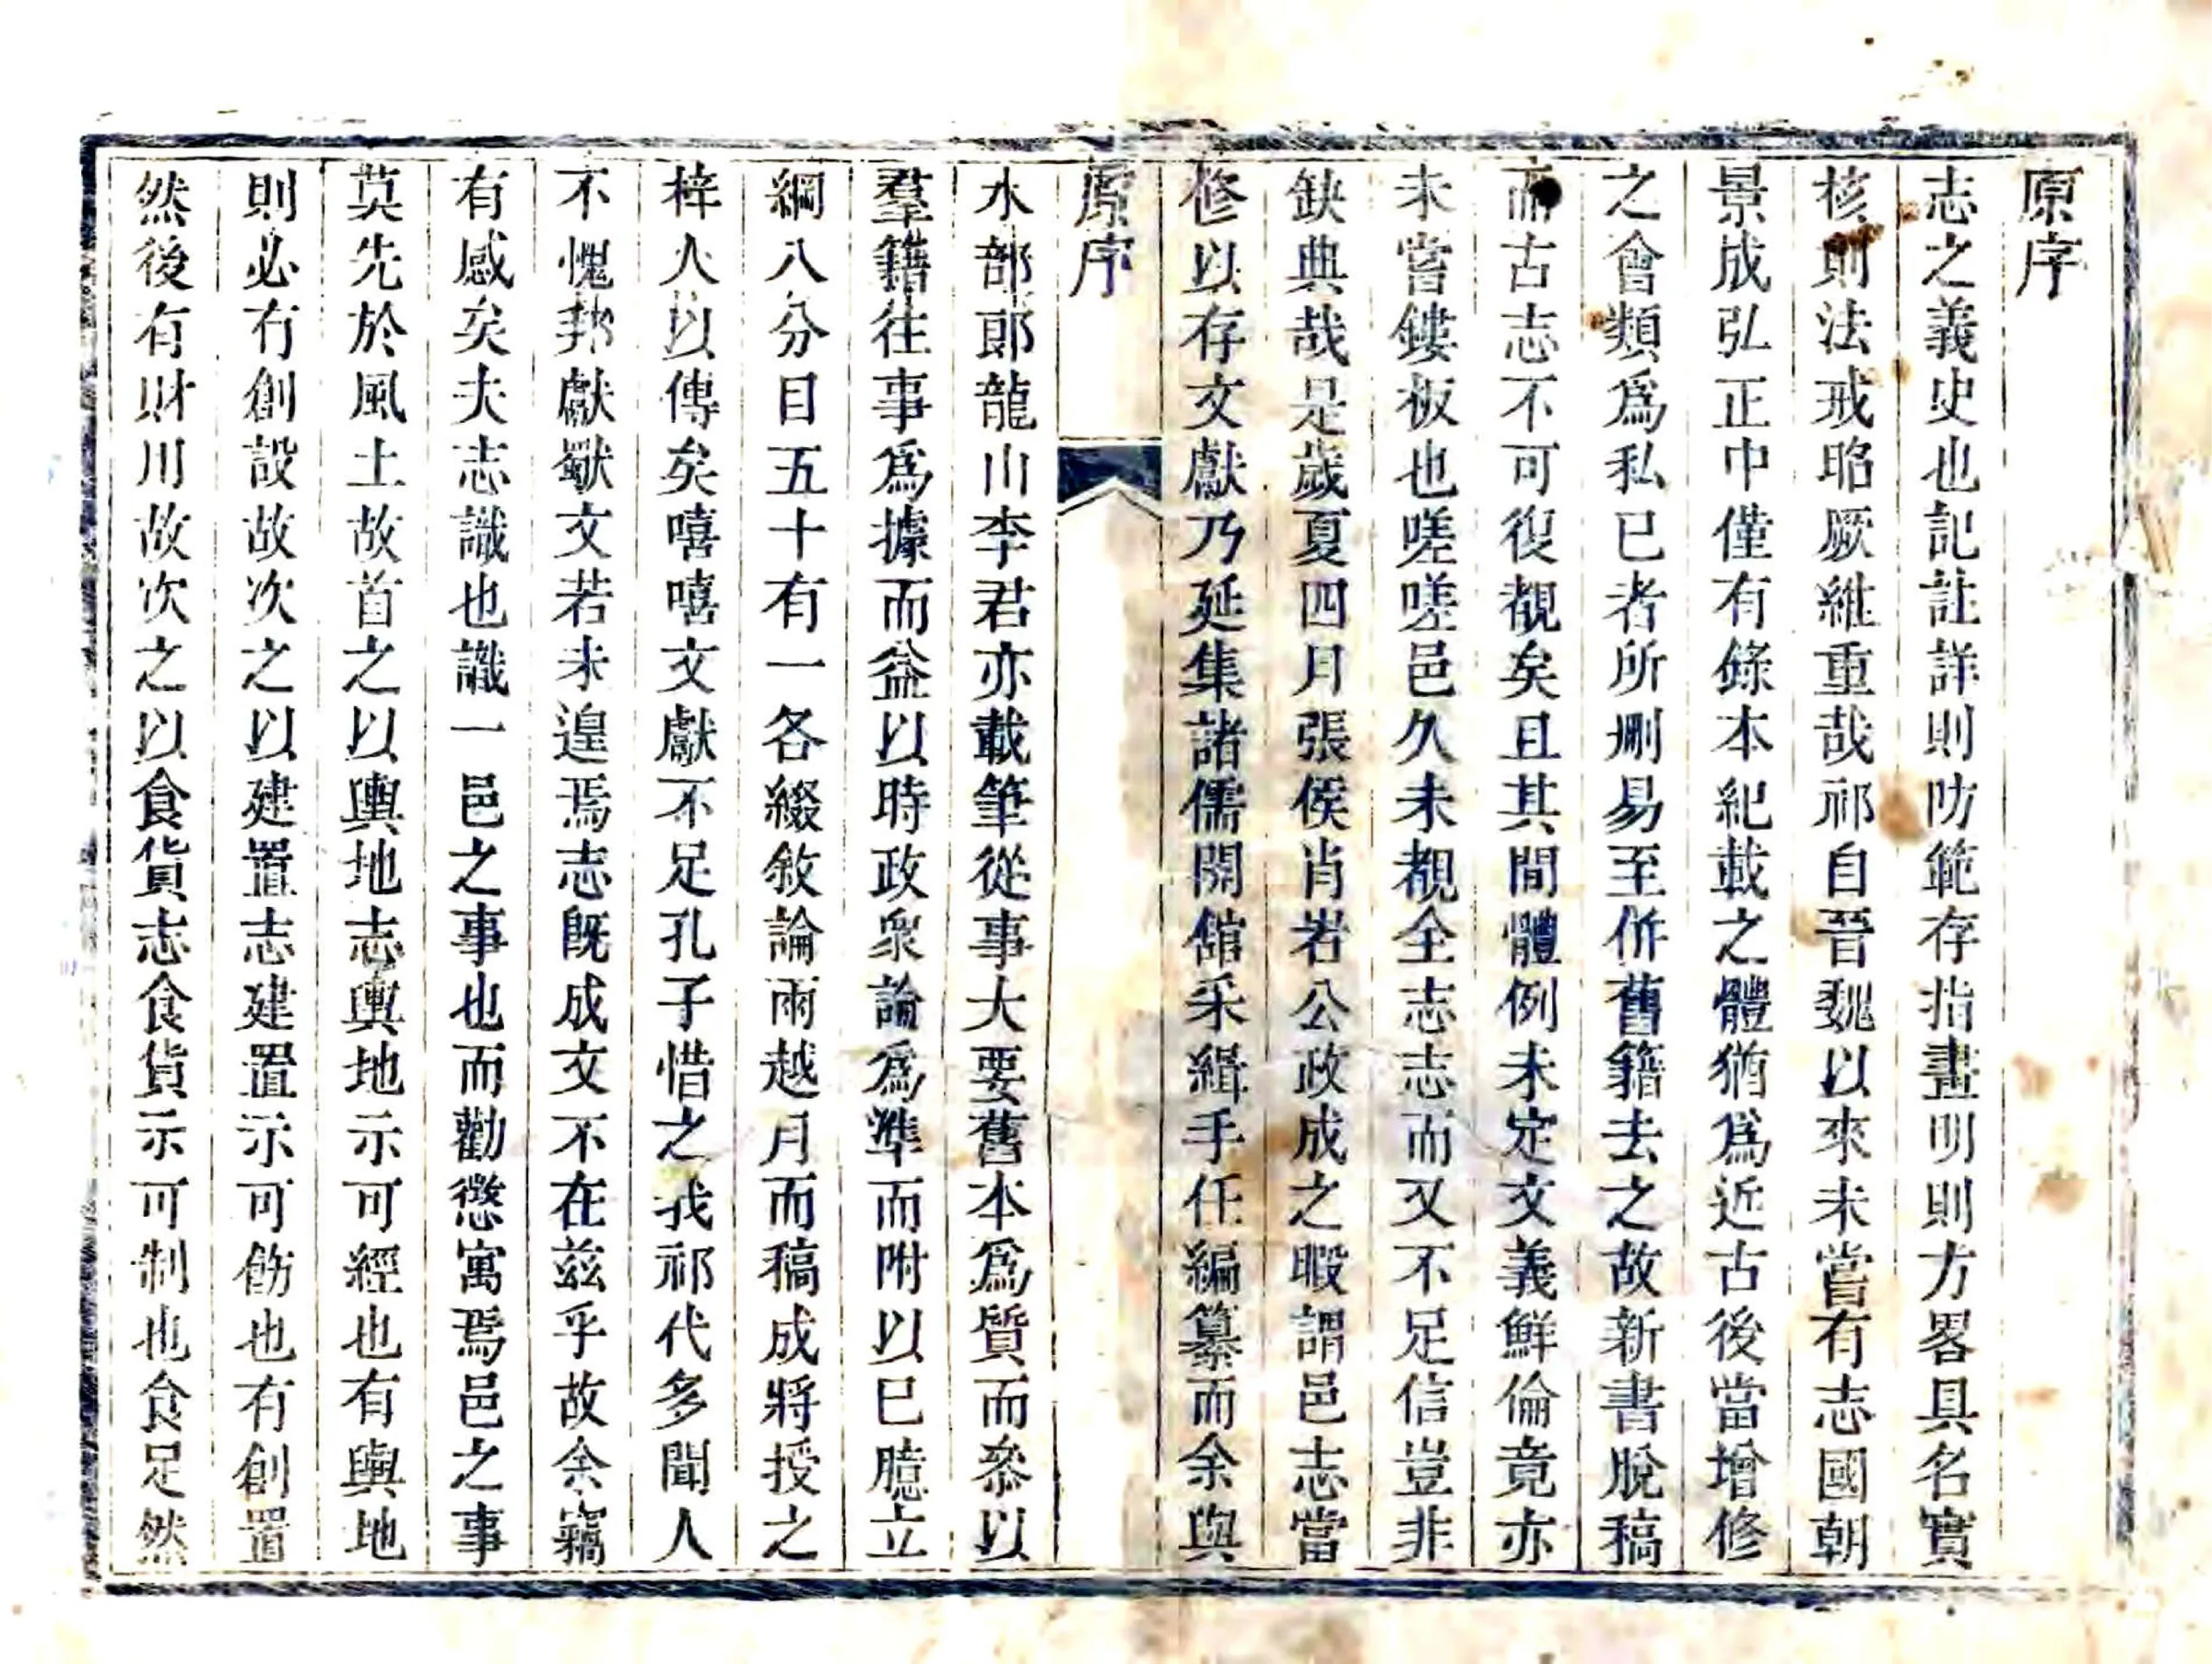 原序
志之義史也記註詳則防範存指畫明則方畧具名實
核則法戒昭厥維重哉祁自晉魏以來未嘗有志國朝
景成弘正中僅有錄本紀載之體猶爲近古後當增修
之會類爲私已者所刪易至併舊籍去之故新書脫稿
而古志不可復覩矣且其間體例未定文義鮮倫竟亦
未嘗鏤板也嗟嗟邑久未覩全志志而又不足信豈非
缺典哉是歲夏四月張侯肖岩公政成之暇謂邑志當
修以存文獻乃延集諸儒開舘采緝手任編纂而余與
原序
水部郎龍川李君亦載筆從事大要舊本爲質而叅以
羣籍往事爲據而益以時政衆論爲準而附以巳臆立
綱八分目五十有一各綴敘論兩越月而稿成將授之
梓人以傳矣嘻嘻文獻不足孔子惜之我祁代多聞人
不愧邦獻獻文若未遑焉志既成文不在兹乎故余竊
有感矣夫志識也識一邑之事也而勸懲寓焉邑之事
莫先於風土故首之以輿地志輿地示可經也有輿地
則必有創設故次之以建置志建置示可飭也有創置
然後有財用故次之以食貨志食貨示可制也食足然